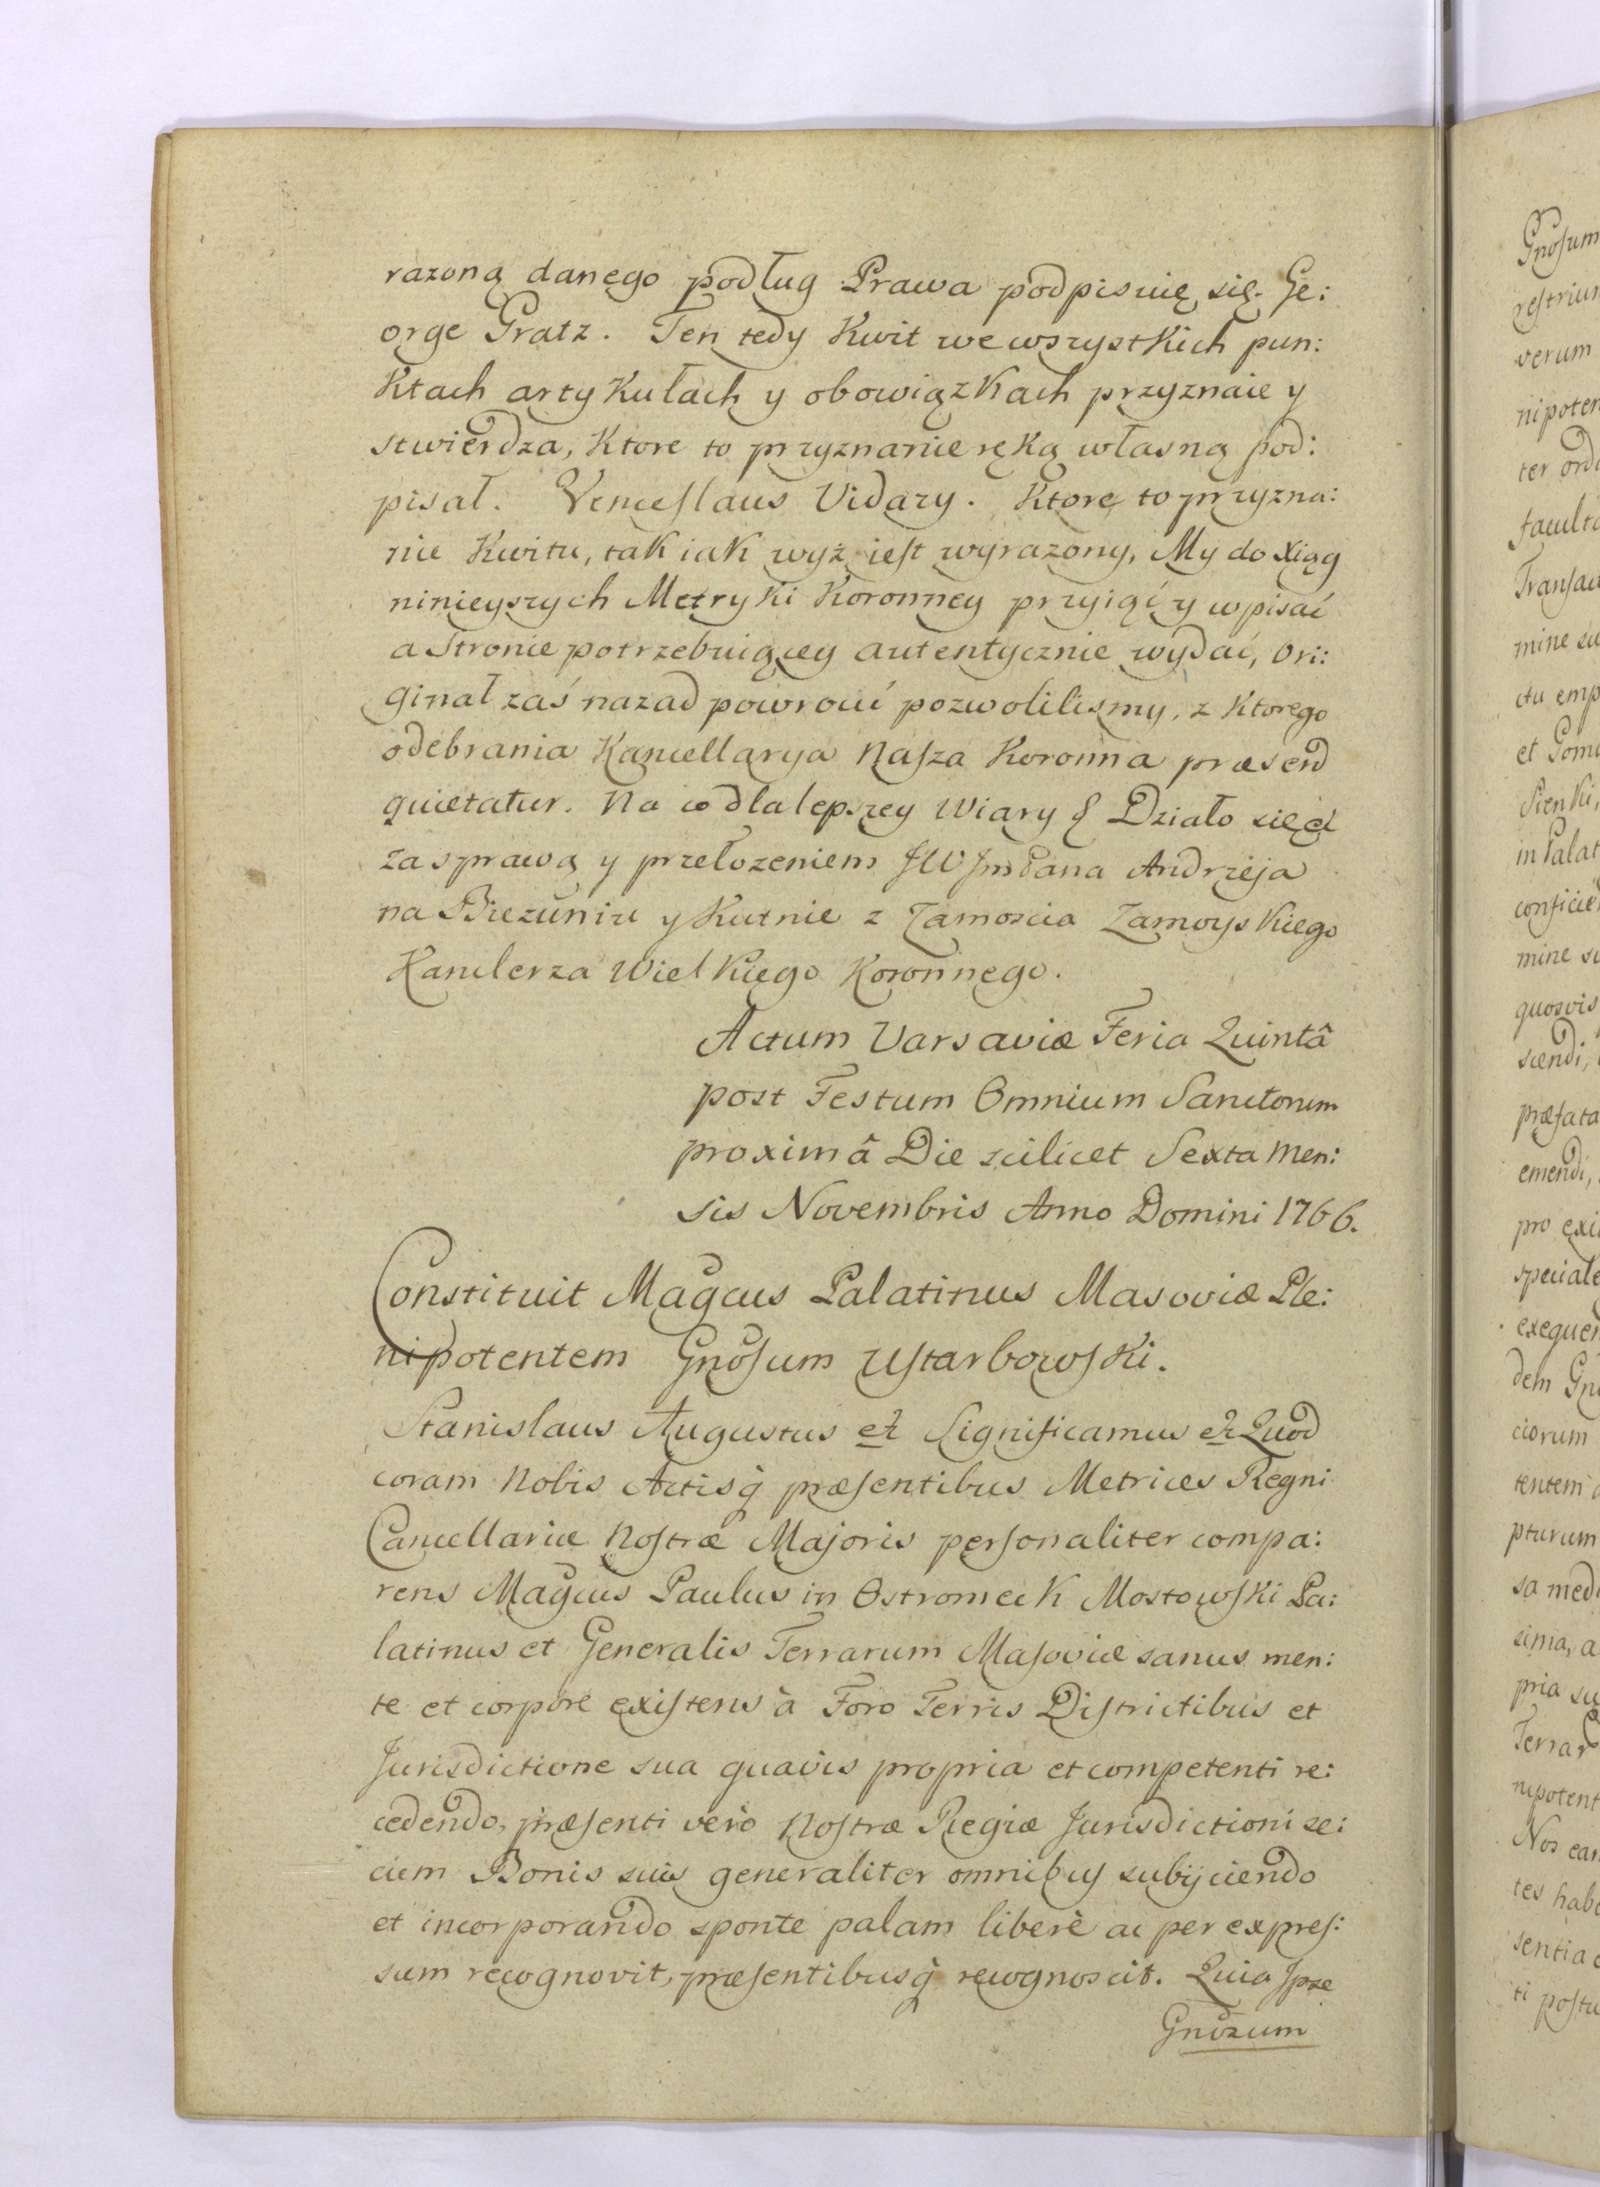 razoną danego podług Prawa podpisuię się. Ge:
orge Gratz. Ten tedy Kwit we wszystkich pun:
Ktach artykułach y obowiązkach przyznaie y
stwierdza, Ktore to przyznanie ręką własną pod:
pisał. Venceslaus Vidazy. Ktore to przyzna:
nie Kwitu, tak iak wyż iest wyrazony, My do Xiąg
ninieyszych Metryki Koronney przyiąć y wpisać
a Stronie potrzebuiącey autentycznie wydać, Ori:
ginał zaś nazad powrocić pozwolilismy, z Ktorego
odebrania Kancellarya Nasza Koronna præsend
quietatur. Na co dla lepszey Wiary & Działo się et
za sprawą y przełozeniem JW Jm Pana Andrzeja
na Biezuniu y Kutnie z Zamoscia Zamoyskiego
Kanclerza Wielkiego Koronnego.
Actum Varsaviæ Feria Quintâ
post Festum Omnium Sanctorum
proximâ Die scilicet Sexta Men:
sis Novembris Anno Domini 1766.
Constituit Magcus Palatinus Masoviæ Ple:
nipotentem Gnosum Ustarbowski.
Stanislaus Augustus et Significamus et Quod
coram Nobis Actisq̀ præsentibus Metrices Regni
Cancellariæ Nostræ Majoris personaliter compa:
rens Magcus Paulus in Ostromeck Mostowski Pa:
latinus et Generalis Terrarum Masoviæ sanus men:
te et corpore existens à Foro Terris Districtibus et
Jurisdictione sua quavis propria et competenti re:
cedendo, præsenti verò Nostræ Regiæ Jurisdictioni se:
cum Bonis suis generaliter omnibus subijciendo
et incorporando sponte palam liberè ac per expres:
sum recognovit, præsentibusq̀ recognoscit. Quia Ipse
Gnosum
Gnosum
verum
ter
mine
et
mine
quosvis
præfata
emendi,
exequen
ciorum
pturum